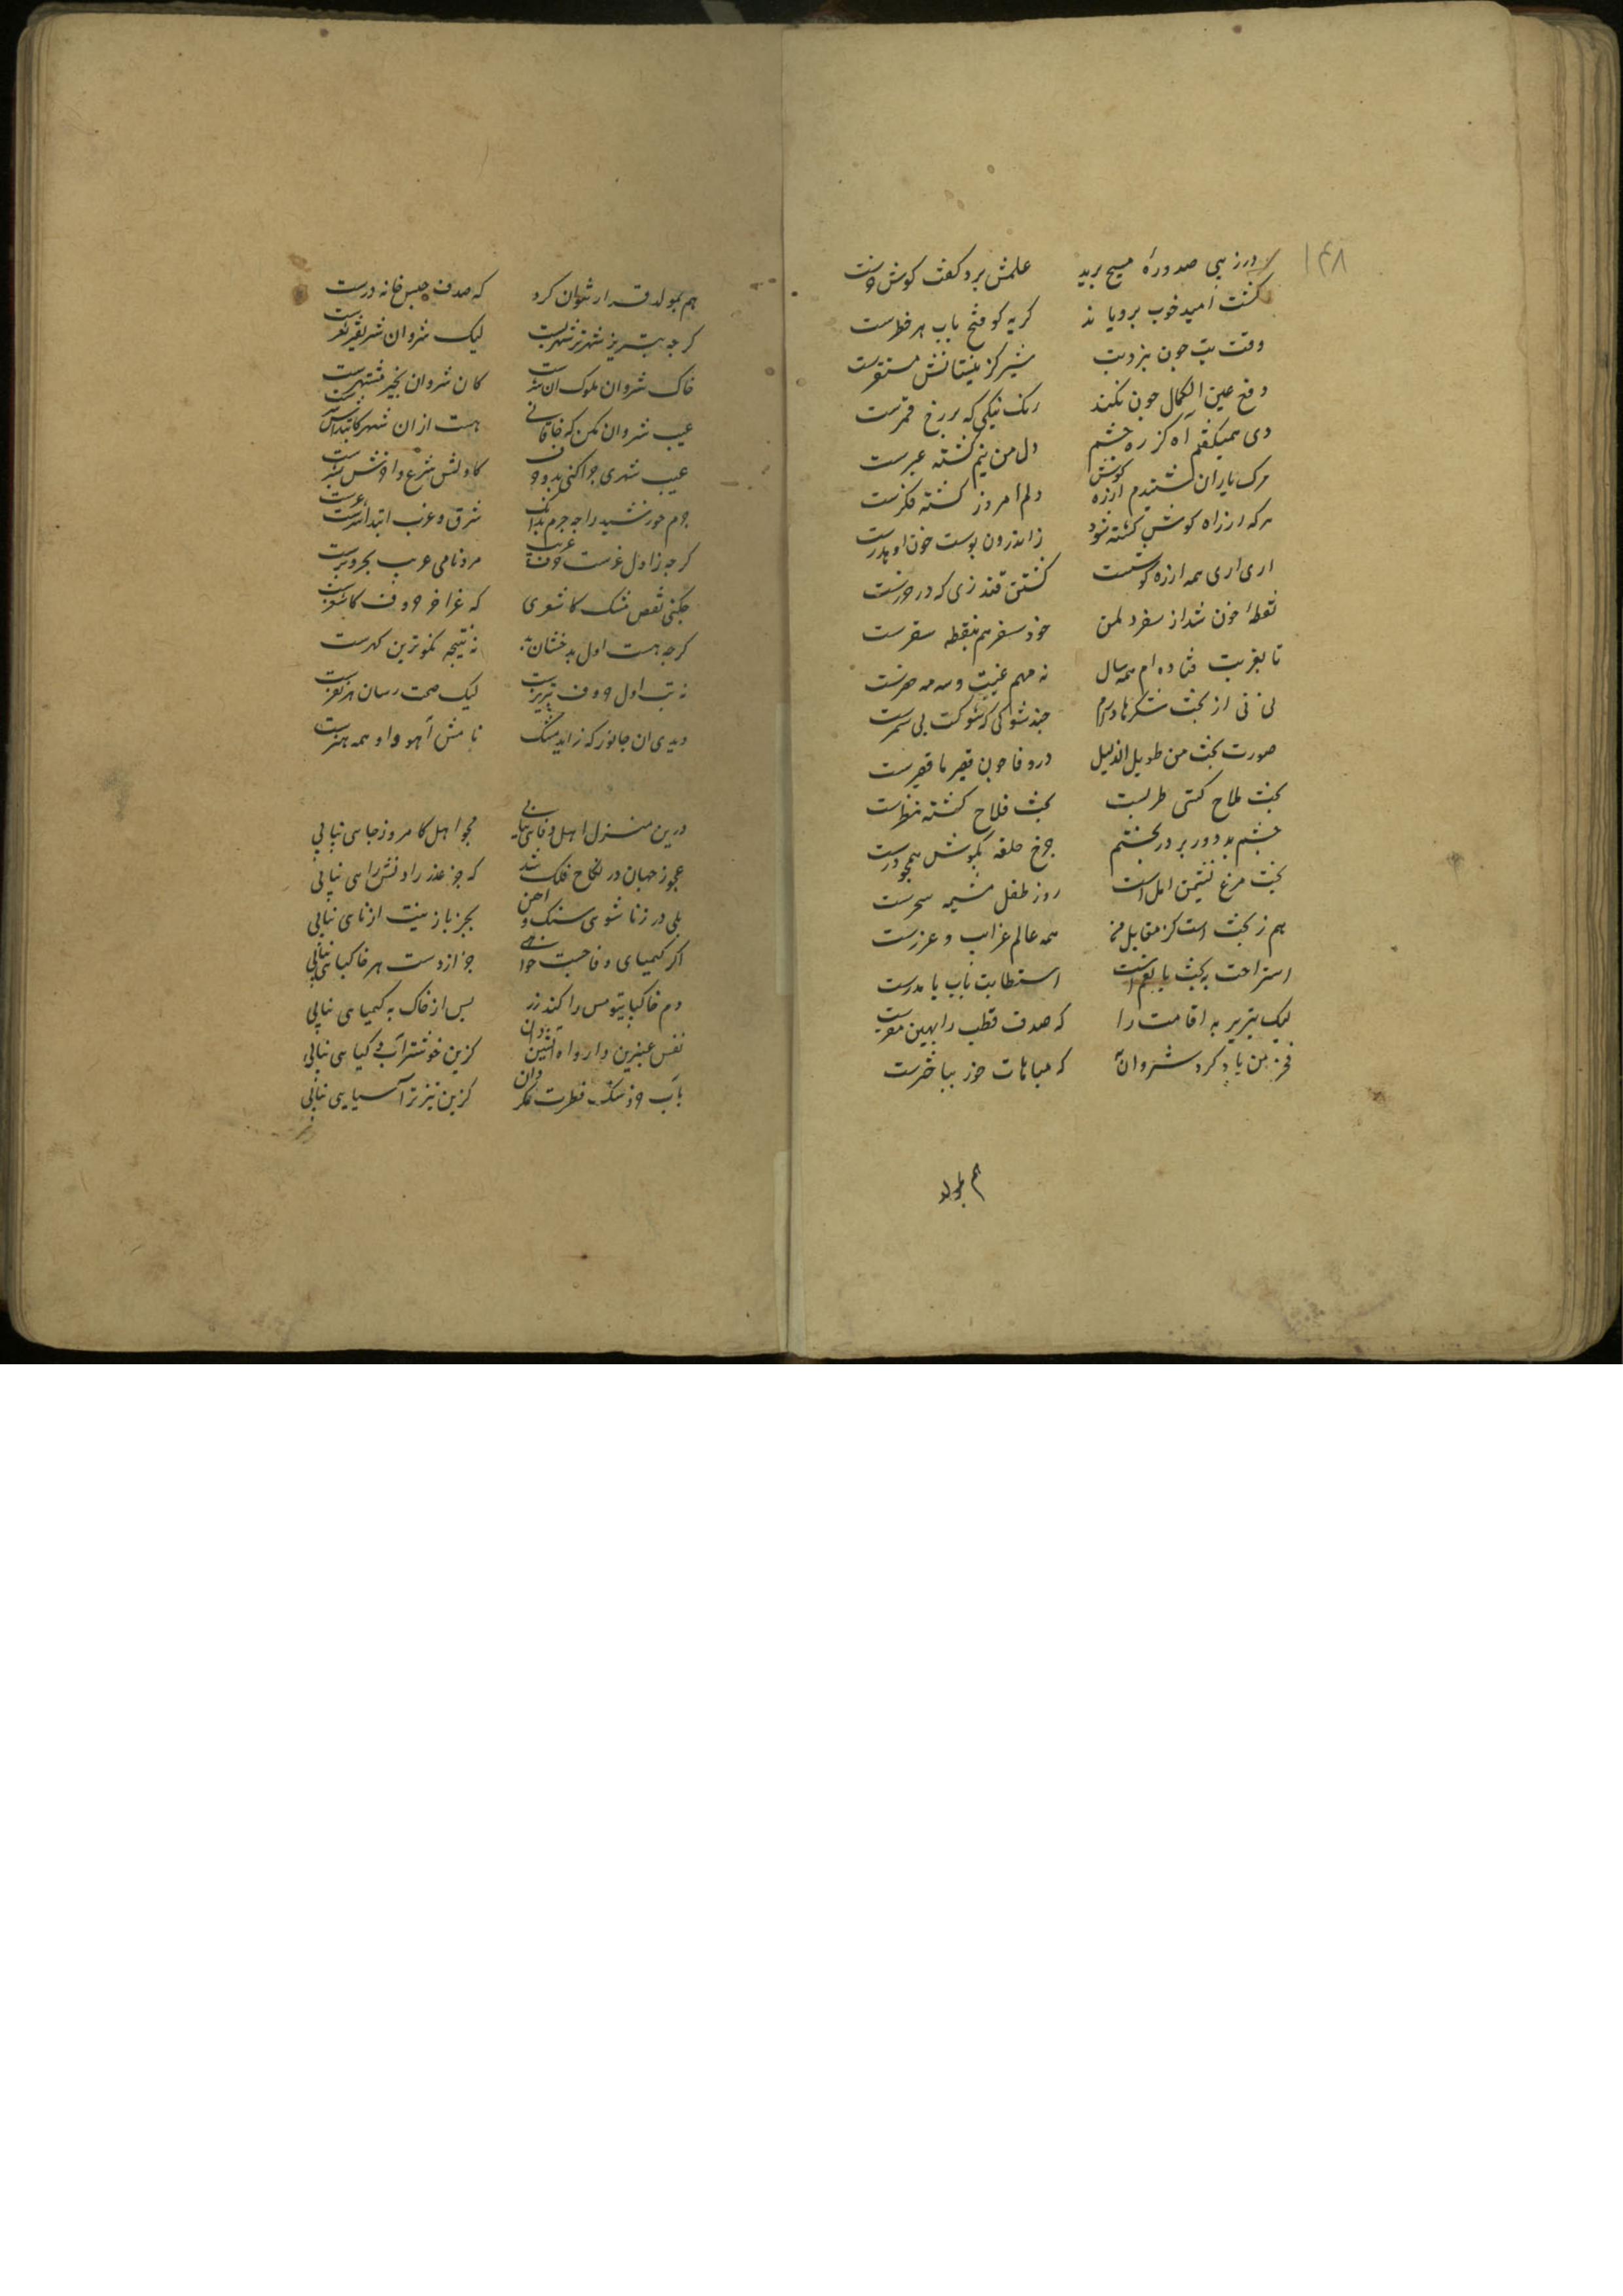 ۱۴۸
درزیی صدورهٔ مسیح برید علمش برد و کفت کوش
کشت امید خوب برویاند کریه کو فتح باب هر خطرست
وقت تب چون بزدبت شیر کز نیستانش مستقرست
دفع عین الکمال چون نکند رنک نیکی که بر رخ قمرست
دی همیکفتم آه کز ره چشم دل من نیم کشته عبرست
مرک یاران شنیدم ازره کوش دلم امروز کشته فکرست
هرکه از راه کوش کشته شود زاندرون پوست خون او هدرست
اری اری همه ازره کوشست کشتن قندزی که در خزرست
نقطهٔ خون شد از سفر دل من خود سفر هم بنقطه سقرست
تا بغربت فتاده ام همه سال نه مهم غیبت و سه مه حضرست
نی نی از بخت شکرها دارم چند شوکی که شوکت بی ثمرست
صورت بخت من طویل الذیل در وفا چون قصیر با قصرست
بخت ملاح کشتی طربست بخت فلاح کشته نظرست
چشم بد دور بر در بختم چرخ حلقه بکوش همچو درست
بخت مرغ نشیمن املست روز طفل مشیمه سحرست
هم ز بخت است کز مقابل من همه عالم غرایب و غررست
استراحت به بخت یا نعم است استطابت باب یا مدرست
لیک تبریز به اقامت را که صدف قطب را بهین مقرست
فخر من یاد کرد شروان به که مباهات خور بباخترست
هم بمولد
هم بمولد قرار نتوان کرد که صدف حبس خانه دررست
کرچه تبریز شهرتر شهریست لیک شروان شریفتر ثغرست
خاک شروان مکوک ان شرست کان شروان بخیر مشتهرست
عیب شروان مکن که خاقانی هست ازان شهر کابتداش شرست
عیب شهری چرا کنی بدو حرف کاولش شرع و اخرش بشرست
جرم خورشید را چه جرم بدانک شرق و غرب ابتدا شرست و غرست
کرچه ز اول غرست حرف غریب مرد نامی غریب بحر و برست
چکنی نقص مشک کاشغری که غر اخر حروف کاشغرست
کرچه هست اول بدخشان بد به نتیجه نکوترین کهرست
نه تب اول حروف تبریزست لیک صحت رسان هر نفرست
دیدی ان جانور که زاید مشک نامش آهو و او همه هنرست
درین منزل اهل وفایی نیابی مجو اهل کامروز جایی نیابی
عجوز جهان در نکاح فلک شد که جز عذر زادنش رایی نیابی
بلی در زناشوی سنک و اهن بجز نار بینت از نایی نیابی
اکر کیمیای وفا جست خواهی جز ازدست هر خاکپایی نیابی
دم خاکپایی تو مس را کند زر پس از خاک به کیمیایی نیابی
نفس عنبرین دار و اه آتشین زان کزین خوشتر آب و کیایی نیابی
باب خرد سنک فطرت بکردان کزین تیزتر آسیایی نیابی